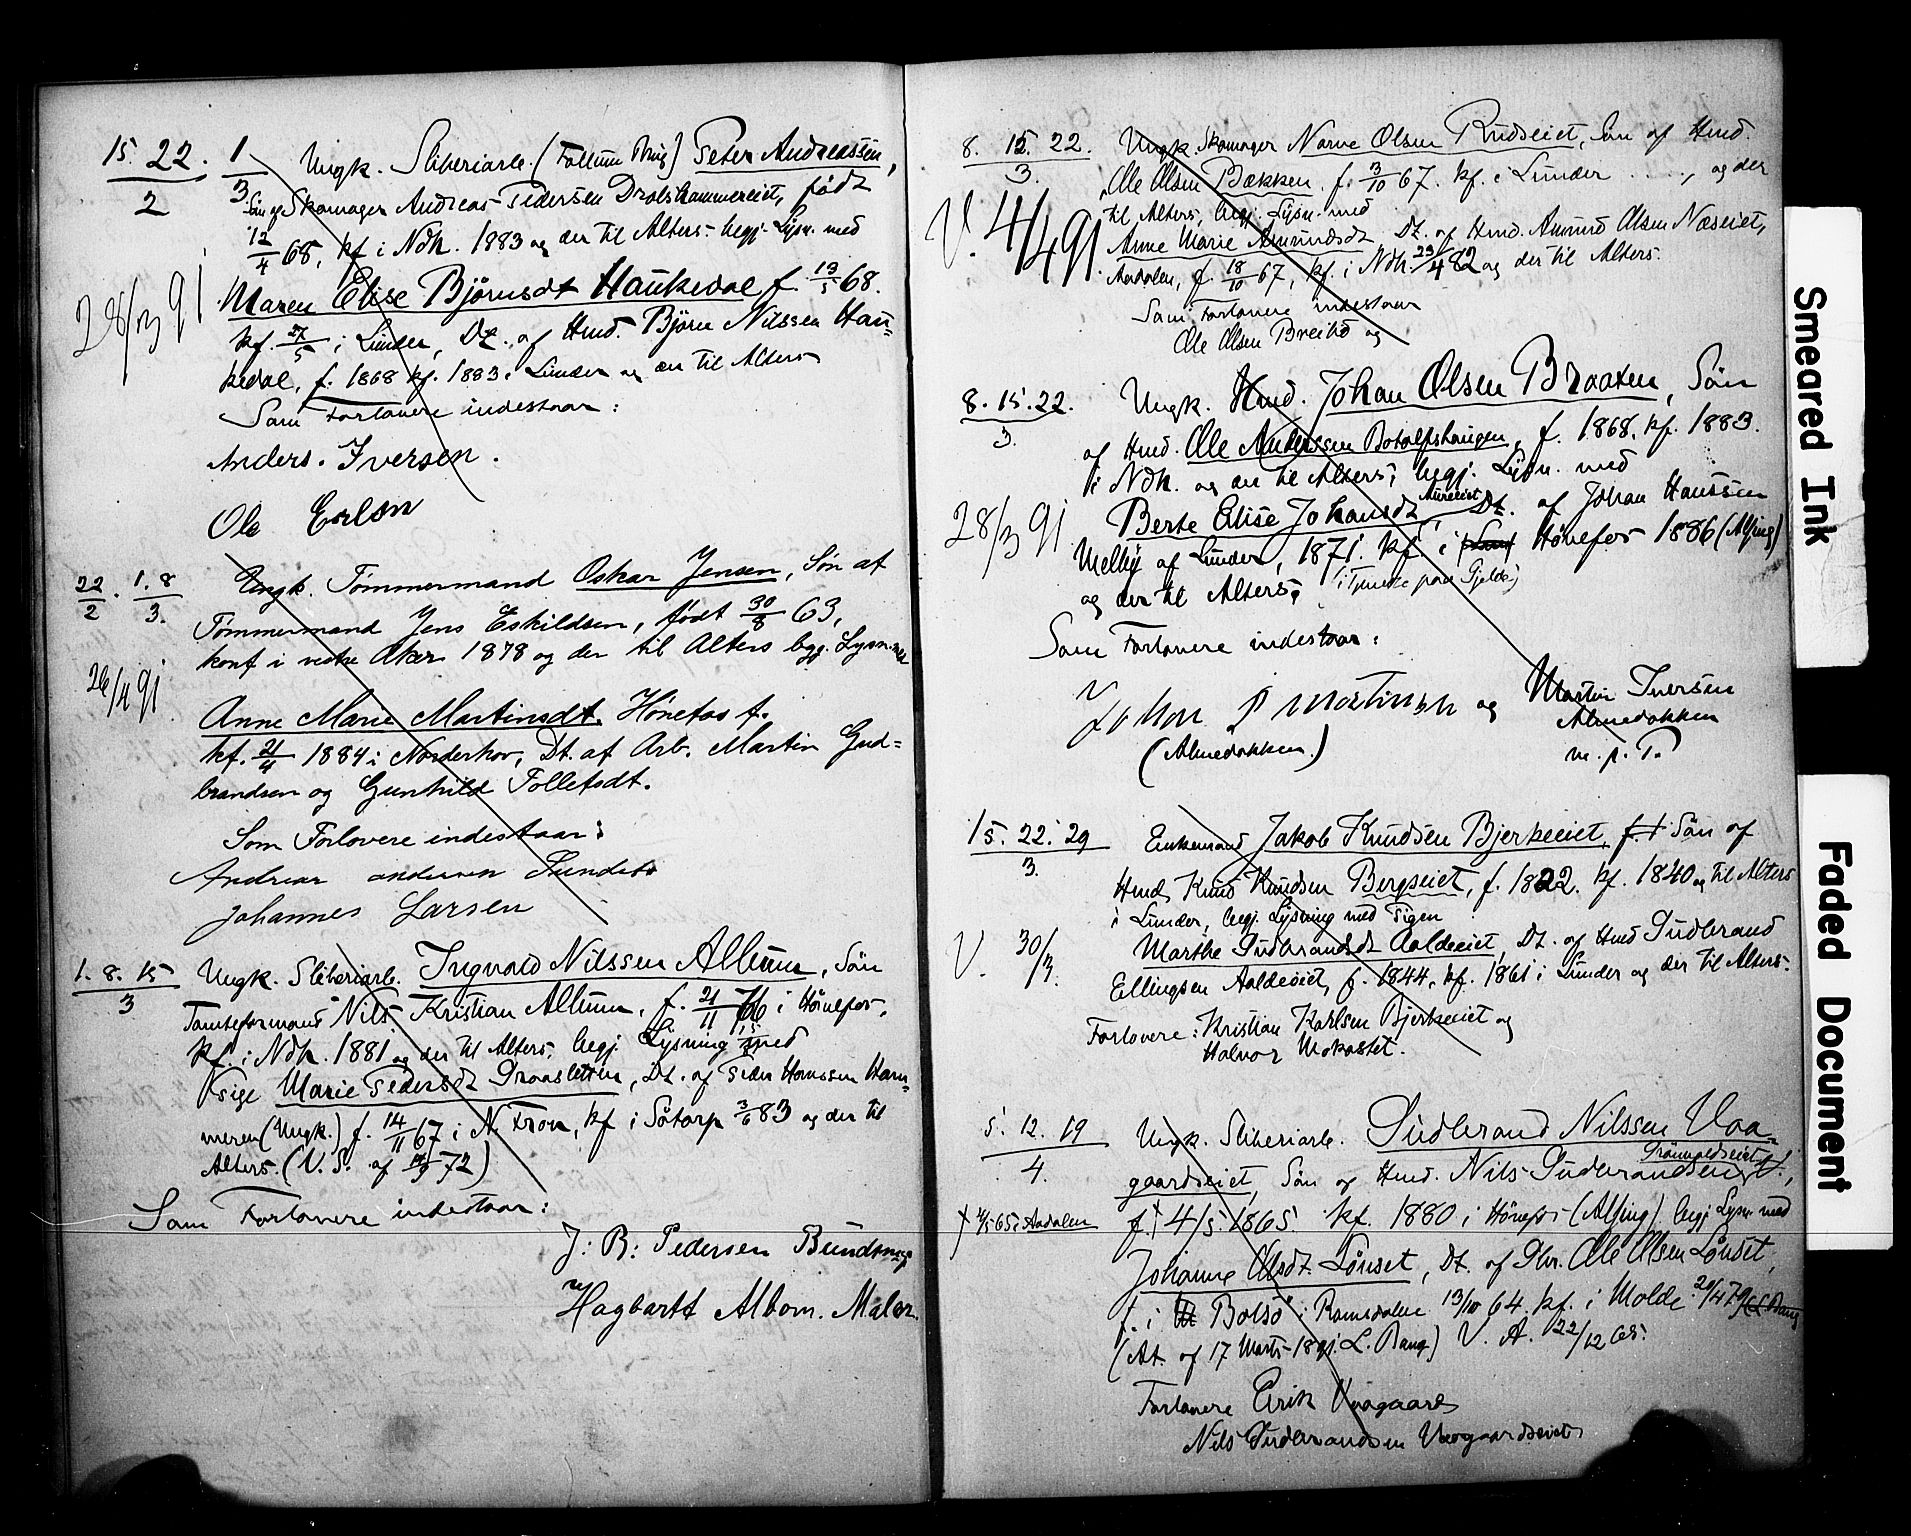 15. 22. 1
2 3
Ungk. Sliberiarb. (Follum Brug) Peter Andreassen,
Søn af Skomager Andreas Pedersen Drolshammereiet, født
12/4 68, kf i Ndh. 1883 og der til Alters- begj. Lysn. med
28/3 91
Maren Elise Bjørnsdt Haukedal f. 19/5 68.
kf. 27/5 i Lunder, Dt. af Hmd. Bjørn Nilssen Hau=
kedal, f. 1868 kf. 1883 i Lunder og der til Alters
Som Forlovere indestaar:
Anders. Iversen.
Ole
22/2. 1. 8/3.
Ungk. Tømmermand Oskar Jensen, Søn af
Tømmermand Jens Eskildsen, født 30/8 63,
konf i vestre Aker 1878 og der til Alters begj. Lysn. med
26/4 91
Anne Marie Martinsdt. Hønefos f.
kf. 21/4 1884 i Norderhov, Dt. af Arb. Martin Gud=
brandsen og Gunhild Tollefsdt.
Som Forlovere indestaar:
Andreas andersen
Johannes Larsen
1. 8. 15
3
Ungk. Sliberiarb. Ingvald Nilssen Album, Søn
Tomteformand Nils Kristian Album, f. 21/11 66 i Hønefos,
kf. i Ndh. 1881 og der til Alters, begj. Lysning med
Pige Marie Pedersdt Braasletten, Dt. af Peder Hanssen Ham=
meren (Ungk.) f. 14/11 67 i N. Fron, kf i Sötorp 3/6 83 og der til
Alters. (V. S. af 72)
Som Forlovere indestaar:
J: B: Pedersen
Hagbartt Albom. Maler.
8. 15. 22.
3.
Ungk. Skomager Narve Olsen Rudseiet, Søn af Hmd.
Ole Olsen Bækken. f. 3/10 67. kf. i Lunder ...., og der
til Alters, begj. Lysn. med
V. 4/4 91.
Anne Marie Amundsdt Dt. af Hmd. Amund Olsen Næseiet,
Aadalen, f. 18/10 67, kf. i Ndh. 23/4 82 og der til Alters.
Som Forlovere indestaar
Ole Olsen Breibö og
8. 15. 22.
3.
Ungk. Hmd. Johan Olsen Braaten, Søn
af Hmd. Ole Anderssen Botolfshaugen, f. 1868, kf. 1883.
i Ndh. og der til Alters, begj. Lysn. med
28/3 91
Berte Elise Johansdt Aureeiet, Dt. af Johan Hanssen
Melby af Lunder, 1871. kf i Hønefos 1886 (Alfing)
og der til Alters, (i Tjeneste paa Gjelde)
Som Forlovere indestaar:
Johan P Martinsen og Martin Iversen
(Almedokken.) Almedokken
m. p. P.
15. 22. 29
3.
Enkemand Jakob Knudsen Bjerkeeiet, Søn af
Hmd. Knud Knudsen Bergseiet, f. 1822. kf. 1840 og til Alters
i Lunder, begj. Lysning med Pigen
V. 30/3.
Marthe Gudbrandsdt Aaldeeiet, Dt. af Hmd Gudbrand
Ellingsen Aaldeeiet, f. 1844, kf. 1861 i Lunder og der til Alters.
Forlovere: Kristian Karlsen Bjerkeeiet og
Halvor Mokastet.
5. 12. 19
4.
Ungk. Sliberiarb. Gudbrand Nilssen Vaa=
gaardseiet, Søn af Hmd. Nils Gudbrandsen
f. 4/5. 1865 kf. 1880 i Hønefos (Alfing) begj Lysn med
† 4/5 65 i Aadalen
Johanne Olsdt. Lønset, Dt. af Gbr. Ole Olsen Lønset,
f. i Bolsö i Romsdalen 13/10 64. kf. i Molde 20/4 79
(At. af 17 Marts 1891 L. Bang) V. A. 22/12 65.
Forlovere Erik Vaagaard
Nils Gudbrandsen Vaagaardseiet
Smeared Ink
Faded Document